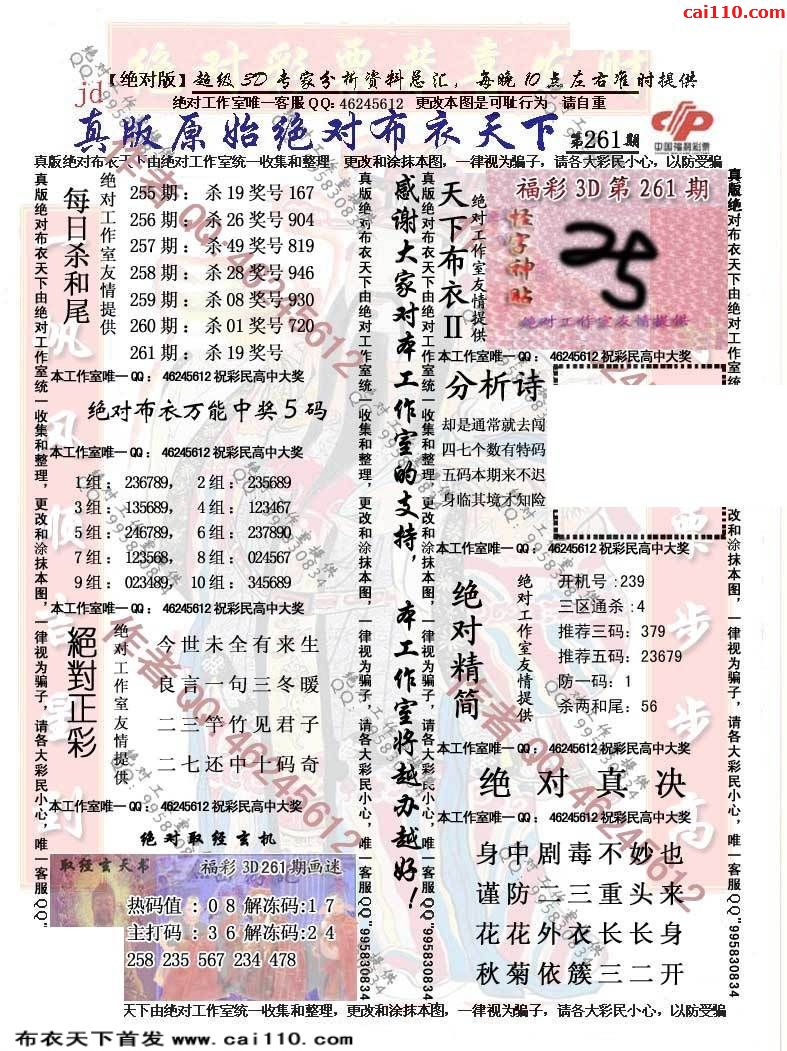 cai110.com
【绝对版】超级3D专家分析资料总汇，每晚10点左右准时提供
jd
绝对工作室唯一客服QQ: 46245612 更改本图是可耻行为 请自重
真版原始绝对布衣天下 第261期
中国福利彩票
真版绝对布衣天下由绝对工作室统一收集和整理，更改和涂抹本图，一律视为骗子，请各大彩民小心，以防受骗
每日杀和尾
绝对工作室友情提供
255期：杀19奖号167
256期：杀26奖号904
257期：杀49奖号819
258期：杀28奖号946
259期：杀08奖号930
260期：杀01奖号720
261期：杀19奖号
本工作室唯一QQ：46245612祝彩民高中大奖
绝对布衣万能中奖5码
本工作室唯一QQ：46245612祝彩民高中大奖
1组：236789， 2组：235689
3组：135689， 4组：123467
5组：246789， 6组：237890
7组：123568， 8组：024567
9组：023489， 10组：345689
本工作室唯一QQ：46245612祝彩民高中大奖
絕對正彩
绝对工作室友情提供
今世未全有来生
良言一句三冬暖
二三竿竹见君子
二七还中十码奇
本工作室唯一QQ：46245612祝彩民高中大奖
绝对取经玄机
取经玄天书 福彩3D261期画迷
热码值：08解冻码:17
主打码：36解冻码:24
258 235 567 234 478
感谢大家对本工作室的支持，本工作室将越办越好！
天下布衣II
绝对工作室友情提供
福彩3D第261期
怪字神贴
25
绝对工作室友情提供
本工作室唯一QQ：46245612祝彩民高中大奖
分析诗
却是通常就去闯
四七个数有特码
五码本期来不迟
身临其境才知险
本工作室唯一QQ：46245612祝彩民高中大奖
绝对精简
绝对工作室友情提供
开机号:239
三区通杀:4
推荐三码:379
推荐五码:23679
防一码:1
杀两和尾:56
本工作室唯一QQ：46245612祝彩民高中大奖
绝对真决
本工作室唯一QQ：46245612祝彩民高中大奖
身中剧毒不妙也
谨防一三重头来
花花外衣长长身
秋菊依簇三二开
真版绝对布衣天下由绝对工作室统一收集和整理，更改和涂抹本图，一律视为骗子，请各大彩民小心，唯一客服QQ"995830834
天下由绝对工作室统一收集和整理，更改和涂抹本图，一律视为骗子，请各大彩民小心，以防受骗
布衣天下首发 www.cai110.com